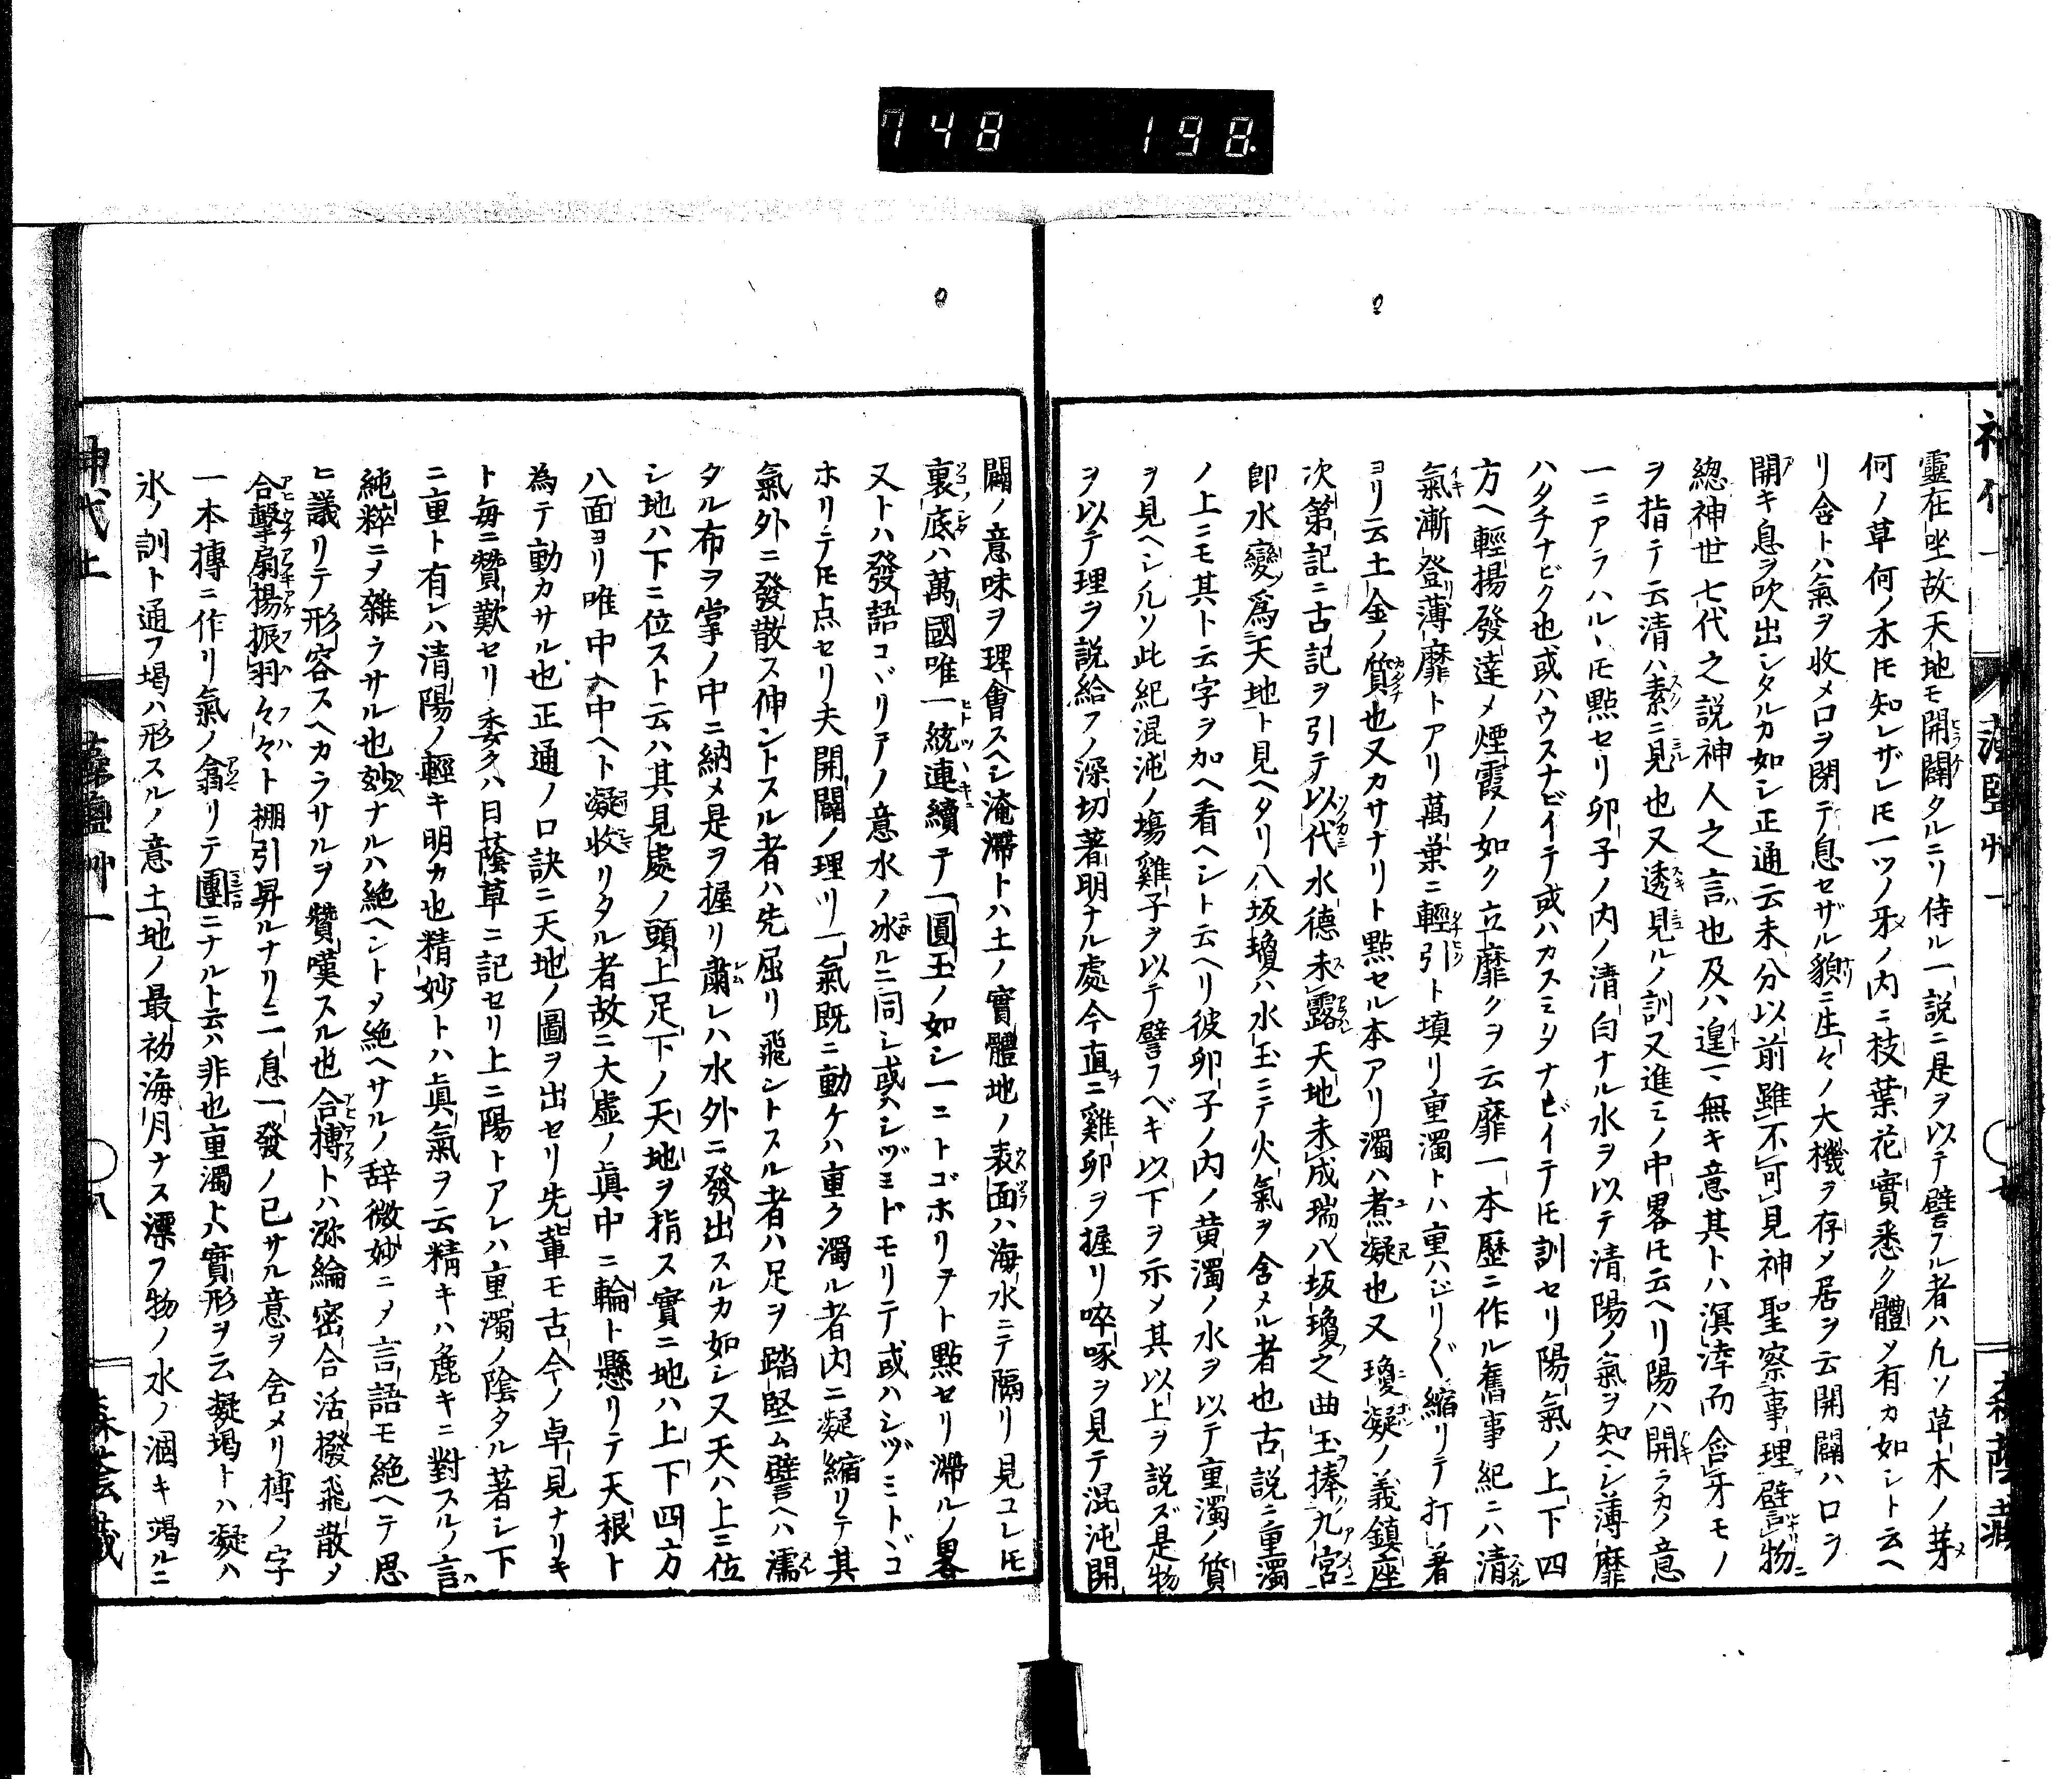 748 198.
靈在坐故天地モ開闢タルニリ侍ル一說ニ是ヲ以テ譬フル者ハ凡ソ草木ノ芽
何ノ草何ノ木𪜈知レザレ𪜈一ツノ牙ノ内ニ枝葉花實悉ク體メ有カ如シト云ヘ
リ含トハ氣ヲ收メ口ヲ閉テ息セザル貌ニ生々ノ大機ヲ存メ居ヲ云開闢ハ口ヲ
開キ息ヲ吹出シタルカ如シ正通云未分以前雖不可見神聖察事理譬物
總神世七代之說神人之言也及ハ遑一無キ意其トハ溟涬而含牙モノ
ヲ指テ云清ハ素ニ見也又透見ルノ訓又進ミノ中畧𪜈云ヘリ陽ハ開ラカノ意
一ニアラハルヽ𪜈點セリ卵子ノ内ノ清白ナル水ヲ以テ清陽ノ氣ヲ知ヘシ薄靡
ハタチナビク也或ハウスナビイテ或ハカスミタナビイテ𪜈訓セリ陽氣ノ上下四
方ヘ輕揚發達メ煙霞ノ如ク立靡クヲ云靡一本歷ニ作ル舊事紀ニハ清
氣漸登薄靡トアリ萬葉ニ輕引ト填リ重濁トハ重ハヂリ〱縮リテ打著
ヨリ云土金ノ質也又カサナリト點セル本アリ濁ハ煮凝也又瓊凝ノ義鎮座
次第記ニ古記ヲ引テ以代水德未露天地未成瑞八坂瓊之曲玉捧九宮
即水變爲天地ト見ヘタリ八坂瓊ハ水玉ニテ火氣ヲ含メル者也古說ニ重濁
ノ上ニモ其ト云字ヲ加ヘ看ヘシト云ヘリ彼卵子ノ内ノ黄濁ノ水ヲ以テ重濁ノ質
ヲ見ヘシ凡ソ此紀混沌ノ塲雞子ヲ以テ譬フベキ以下ヲ示メ其以上ヲ說ズ是物
ヲ以テ理ヲ說給フノ深切著明ナル處今直ニ雞卵ヲ握リ啐啄ヲ見テ混沌開
闢ノ意味ヲ理會スヘシ淹滯トハ土ノ實體地ノ表面ハ海水ニテ隔リ見ユレ𪜈
裏底ハ萬國唯一統連續テ一圓玉ノ如シ一ニトゴホリヲト點セリ滯ルノ畧
又トハ發語コヾリヲノ意水ノ冰ルニ同シ或ヘシヅミドモリテ或ハシヅミトヾコ
ホリテ𪜈点セリ夫開闢ノ理リ一氣既ニ動ケハ重ク濁ル者内ニ凝縮リテ其
氣外ニ發散ス伸ントスル者ハ先屈リ飛ントスル者ハ足ヲ踏堅ム譬ヘハ濡
タル布ヲ掌ノ中ニ納メ是ヲ握リ肅レハ水外ニ發出スルカ如シ又天ハ上ニ位
シ地ハ下ニ位スト云ハ其見處ノ頭上足下ノ天地ヲ指ス實ニ地ハ上下四方
八面ヨリ唯中ヘ中ヘト凝收リタル者故ニ大虛ノ眞中ニ輪ト懸リテ天根ト
為テ動カサル也正通ノ口訣ニ天地ノ圖ヲ出セリ先輩モ古今ノ卓見ナリキ
ト毎ニ贊歎セリ委クハ日蔭草ニ記セリ上ニ陽トアレハ重濁ノ陰タル著シ下
ニ重ト有レハ清陽ノ輕キ明カ也精妙トハ眞氣ヲ云精キハ麁キニ對スルノ言
純粹ニメ雜ラサル也妙ナルハ絶ヘントメ絶ヘサルノ辞微妙ニメ言語モ絶ヘテ思
ヒ議リテ形容スヘカラサルヲ贊嘆スル也合摶トハ弥綸密合活撥飛散メ
合擊扇揚振羽々々ト棚引昇ルナリ二息一發ノ已サル意ヲ含メリ摶ノ字
一本搏ニ作リ氣ノ翕リテ團ニナルト云ハ非也重濁トハ實形ヲ云凝堨トハ凝ハ
氷ノ訓ト通フ堨ハ形スルノ意土地ノ最初海月ナス漂フ物ノ水ノ涸キ竭ルニ
神代上 藻鹽艸一 八 森蔭藏